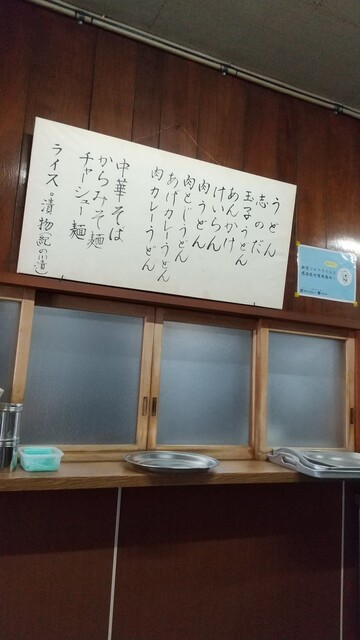 うどん
志のだ
玉子うどん
あんかけ
けいらん
肉うどん
肉とじうどん
あげカレーうどん
肉カレーうどん
中華そば
からみそ麺
チャシュー麺
ライス。漬物(紀の川漬)